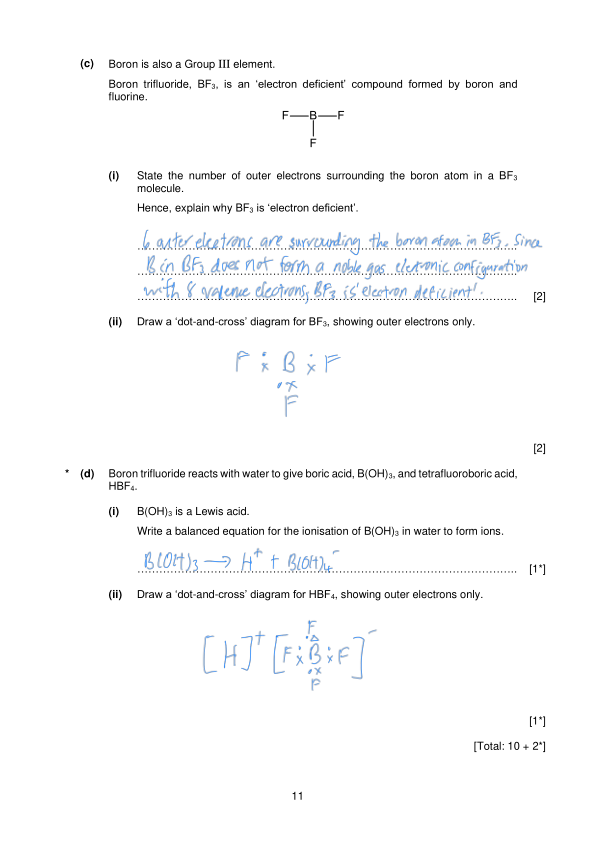 (c) Boron is also a Group III element.
Boron trifluoride, BF3, is an ‘electron deficient’ compound formed by boron and
fluorine.
F B F
F
(i) State the number of outer electrons surrounding the boron atom in a BF3
molecule.
Hence, explain why BF3 is ‘electron deficient’.
6 outer electrons are surrounding the boron atom in BF3. Since
B in BF3 does not form a noble gas electronic configuration
with 8 valence electrons, BF3 is 'electron deficient'. [2]
(ii) Draw a ‘dot-and-cross’ diagram for BF3, showing outer electrons only.
F •x B •x F
•x
F
[2]
* (d) Boron trifluoride reacts with water to give boric acid, B(OH)3, and tetrafluoroboric acid,
HBF4.
(i) B(OH)3 is a Lewis acid.
Write a balanced equation for the ionisation of B(OH)3 in water to form ions.
B(OH)3 → H+ + B(OH)4- [1*]
(ii) Draw a ‘dot-and-cross’ diagram for HBF4, showing outer electrons only.
F
•△
[H]+ [F •x B •x F]-
•x
F
[1*]
[Total: 10 + 2*]
11